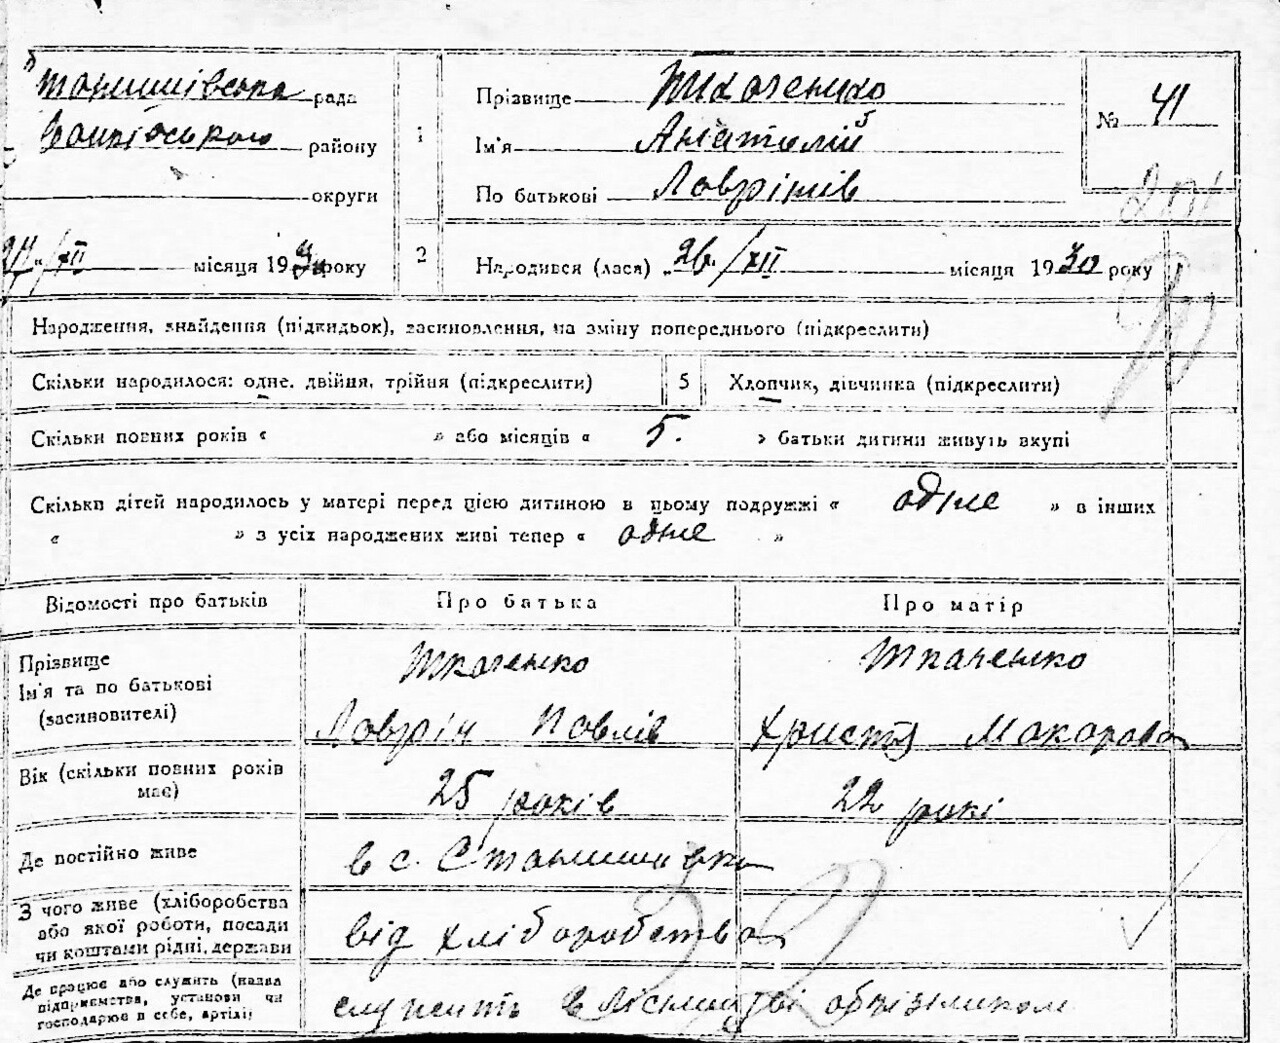 Станишівська рада
району
округи
27/XII місяця 1930 року
1
Прізвище Ткаченко
Ім'я Анатолій
По батькові Лаврінів
№ 41
2
Народився (лася) „26„/XII місяця 1930 року
Народження, знайдення (підкидьок), засиновлення, на зміну попереднього (підкреслити)
Скільки народилося: одне, двійня, трійня (підкреслити)
5
Хлопчик, дівчинка (підкреслити)
Скільки повних років « » або місяців « 5. » батьки дитини живуть вкупі
Скільки дітей народилось у матері перед цією дитиною в цьому подружжі « одне » в інших
« » з усіх народжених живі тепер « одне »
Відомості про батьків
Про батька
Про матір
Прізвище
Ім'я та по батькові
(засиновителі)
Ткаченко
Лаврін Павлів
Ткаченко
Христя Макарова
Вік (скільки повних років
має)
25 років
22 роки
Де постійно живе
в с. Станишівка
З чого живе (хліборобства
або якої роботи, посади
чи коштами рідні, держави
від хліборобства
Де працює або служить (назва
підприємства, установи чи
господарює в себе, артілі)
служить в лісництві об'їзником